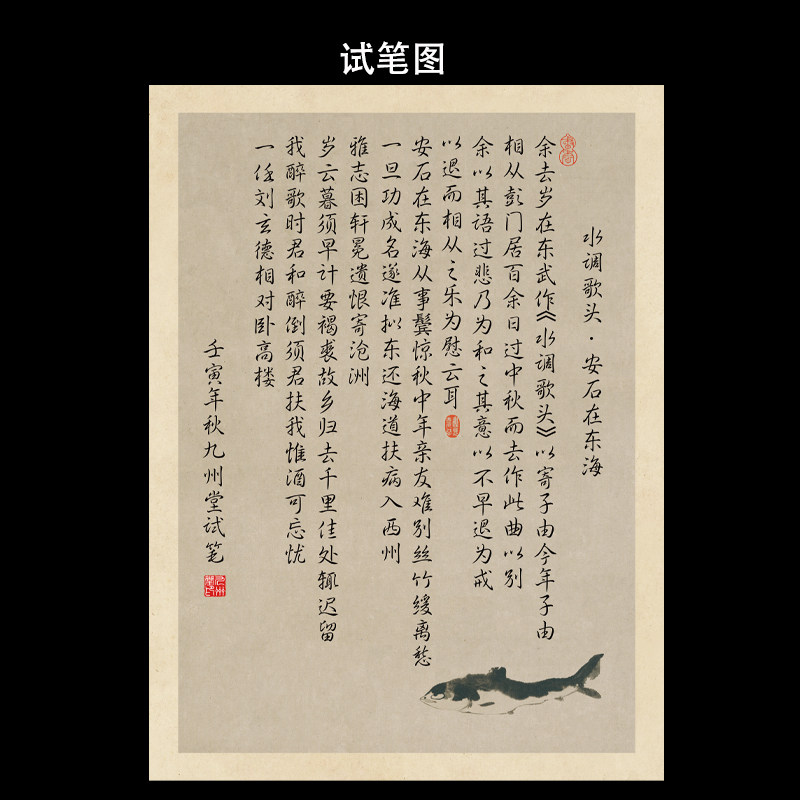 试笔图
水调歌头·安石在东海
余去岁在东武作《水调歌头》以寄子由今年子由
相从彭门居百余日过中秋而去作此曲以别
余以其语过悲乃为和之其意以不早退为戒
以退而相从之乐为慰云耳
安石在东海从事鬓惊秋中年亲友难别丝竹缓离愁
一旦功成名遂准拟东还海道扶病入西州
雅志困轩冕遗恨寄沧洲
岁云暮须早计要褐裘故乡归去千里佳处辄迟留
我醉歌时君和醉倒须君扶我惟酒可忘忧
一任刘玄德相对卧高楼
壬寅年秋九州堂试笔